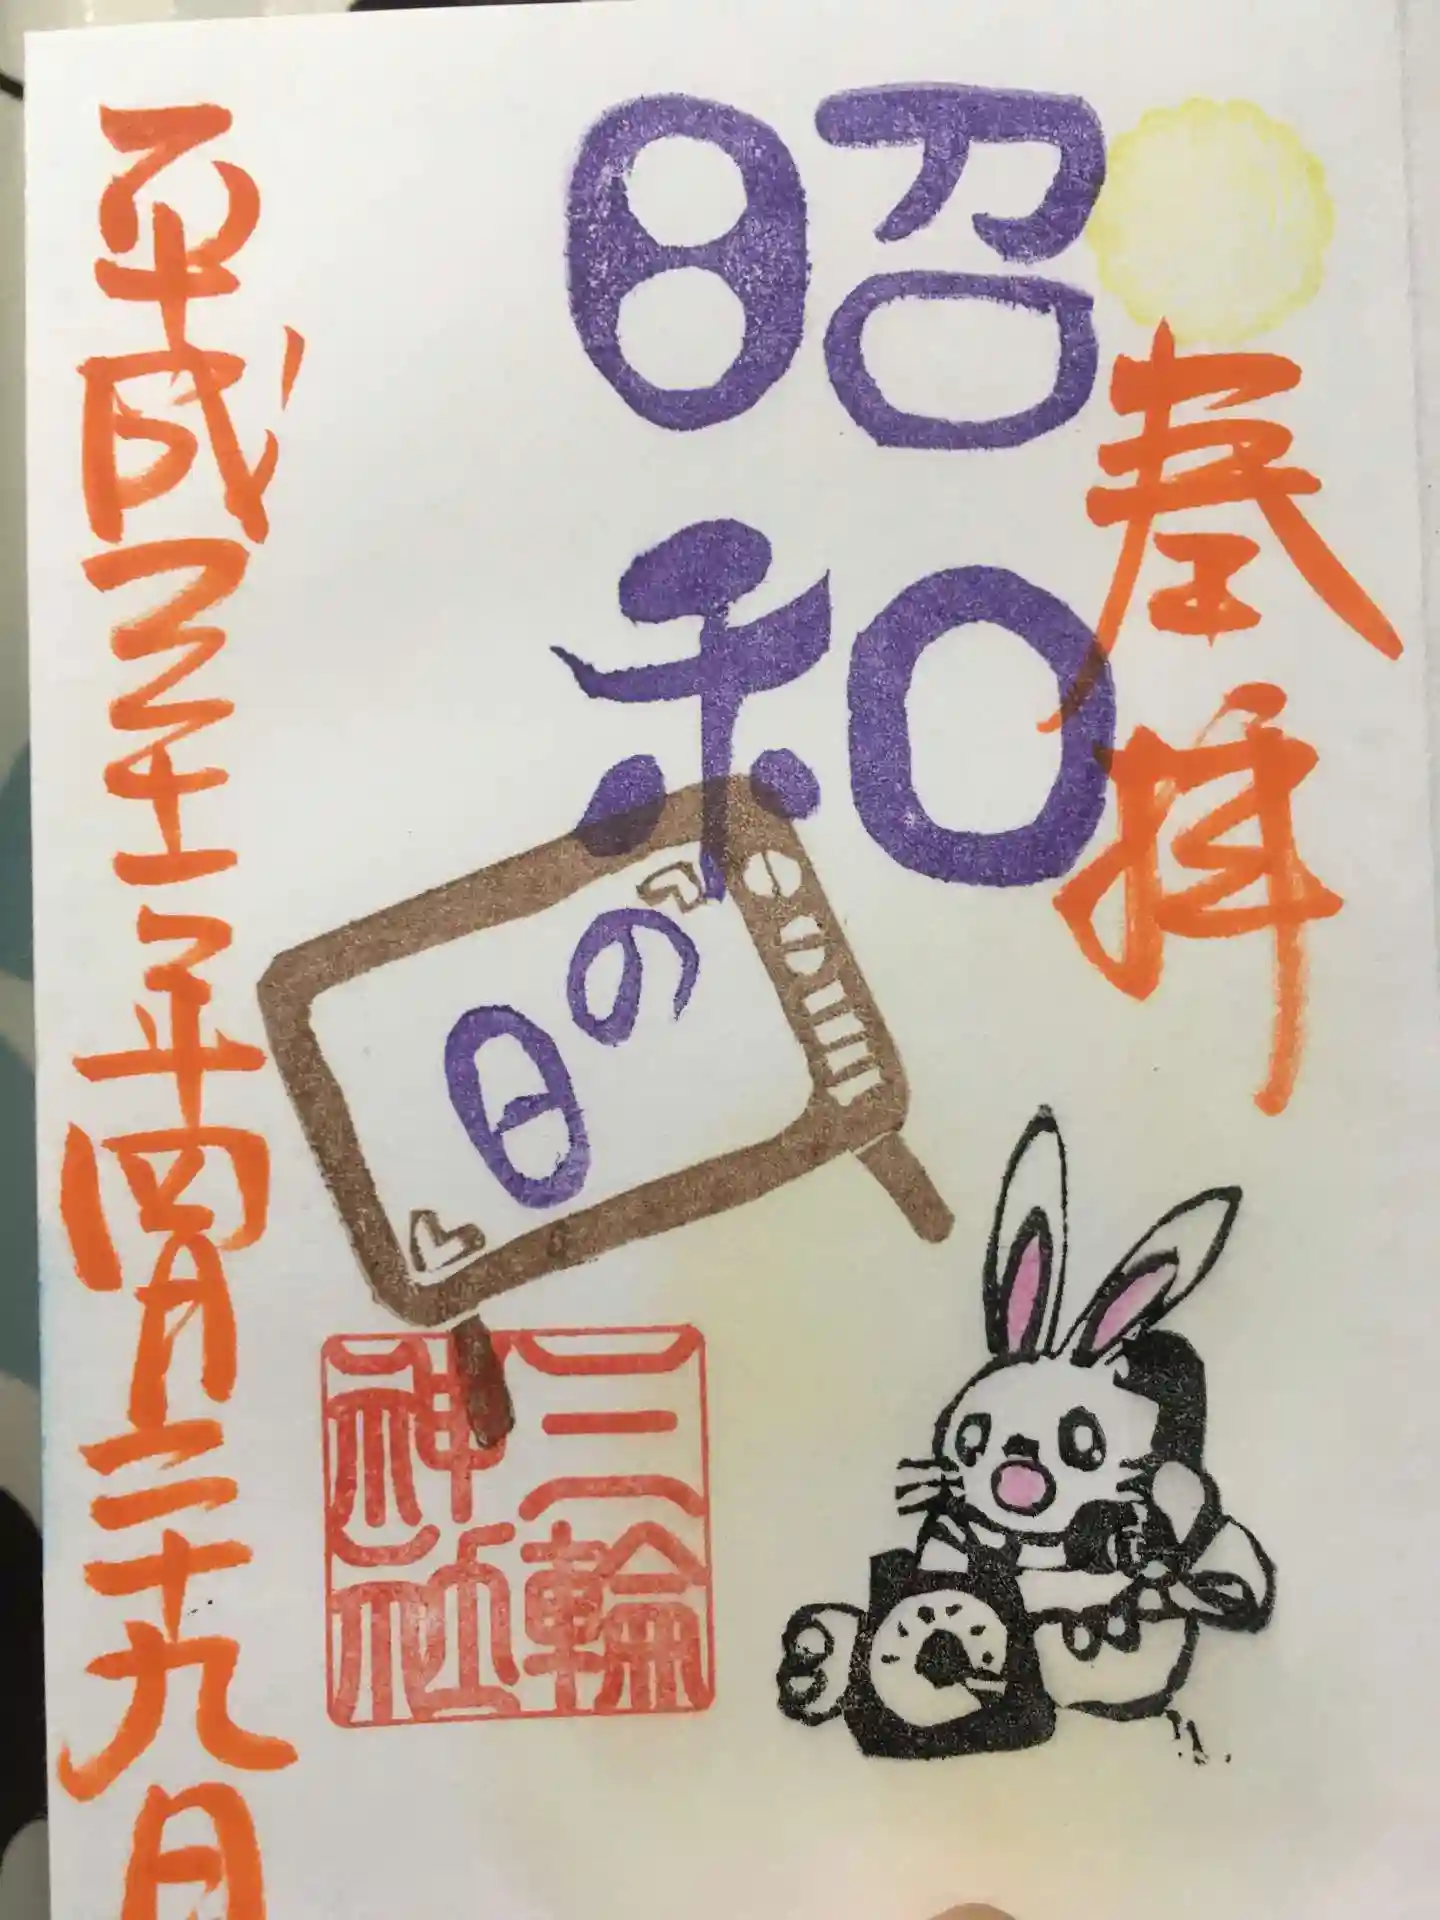 奉拝
昭和
の日
三輪
神社
平成三十一年四月二十九日